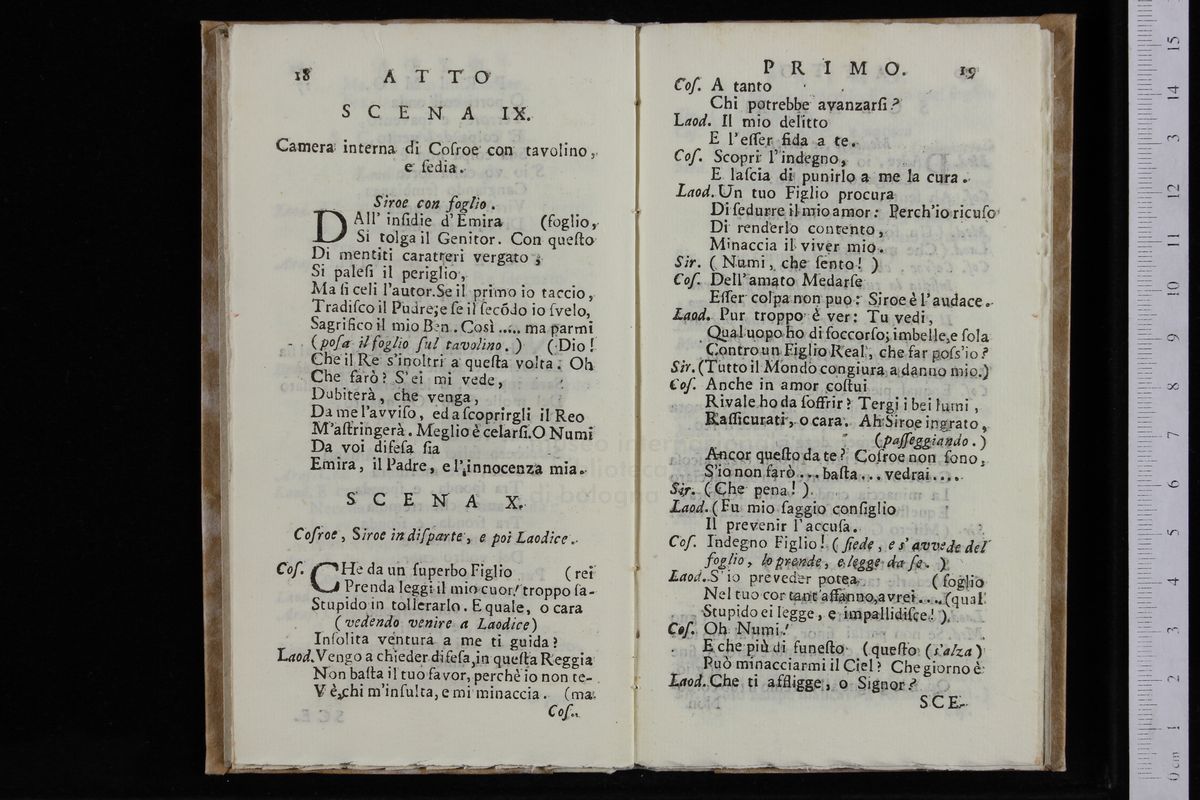 18 ATTO
SCENA IX.
Camera interna di Coſroe con tavolino,
e ſedia.
Siroe con foglio.
DAll' inſidie d'Emira (foglio,
Si tolga il Genitor. Con queſto
Di mentiti caratteri vergato;
Si paleſi il periglio,
Ma ſi celi l'autor. Se il primo io taccio,
Tradiſco il Padre; e ſe il ſecõdo io ſvelo,
Sagrifico il mio Ben. Così ..... ma parmi
(poſa il foglio ſul tavolino.) (Dio!
Che il Re s'inoltri a queſta volta. Oh
Che farò? S'ei mi vede,
Dubiterà, che venga,
Da me l'avviſo, ed a ſcoprirgli il Reo
M'aſtringerà. Meglio è celarſi. O Numi
Da voi difeſa ſia
Emira, il Padre, e l'innocenza mia.
SCENA X.
Coſroe, Siroe in diſparte, e poi Laodice.
Coſ. CHe da un ſuperbo Figlio (rei
Prenda leggi il mio cuor! troppo ſa-
Stupido in tollerarlo. E quale, o cara
(vedendo venire a Laodice)
Inſolita ventura a me ti guida?
Laod. Vengo a chieder difeſa, in queſta Reggia
Non baſta il tuo favor, perchè io non te-
V'è, chi m'inſulta, e mi minaccia. (ma.
Coſ.
PRIMO. 19
Coſ. A tanto
Chi potrebbe avanzarſi?
Laod. Il mio delitto
E l'eſſer fida a te.
Coſ. Scopri l'indegno,
E laſcia di punirlo a me la cura.
Laod. Un tuo Figlio procura
Di ſedurre il mio amor: Perch'io ricuſo
Di renderlo contento,
Minaccia il viver mio.
Sir. (Numi, che ſento!)
Coſ. Dell'amato Medarſe
Eſſer colpa non può: Siroe è l'audace.
Laod. Pur troppo è ver: Tu vedi,
Qual uopo ho di ſoccorſo; imbelle, e ſola
Contro un Figlio Real, che far poſs'io?
Sir. (Tutto il Mondo congiura a danno mio.)
Coſ. Anche in amor coſtui
Rivale ho da ſoffrir? Tergi i bei lumi,
Raſſicurati, o cara. Ah Siroe ingrato,
(paſſeggiando.)
Ancor queſto da te? Coſroe non ſono,
S'io non farò ... baſta ... vedrai ....
Sir. (Che pena!)
Laod. (Fu mio ſaggio conſiglio
Il prevenir l'accuſa.
Coſ. Indegno Figlio! (ſiede, e s'avvede del
foglio, lo prende, e legge da ſe.)
Laod. S'io preveder potea, (foglio
Nel tuo cor tant'affanno, avrei .... (qual
Stupido ei legge, e impallidiſce!)
Coſ. Oh Numi!
E che più di funeſto (queſto (s'alza)
Può minacciarmi il Ciel? Che giorno è
Laod. Che ti affligge, o Signor?
SCE-